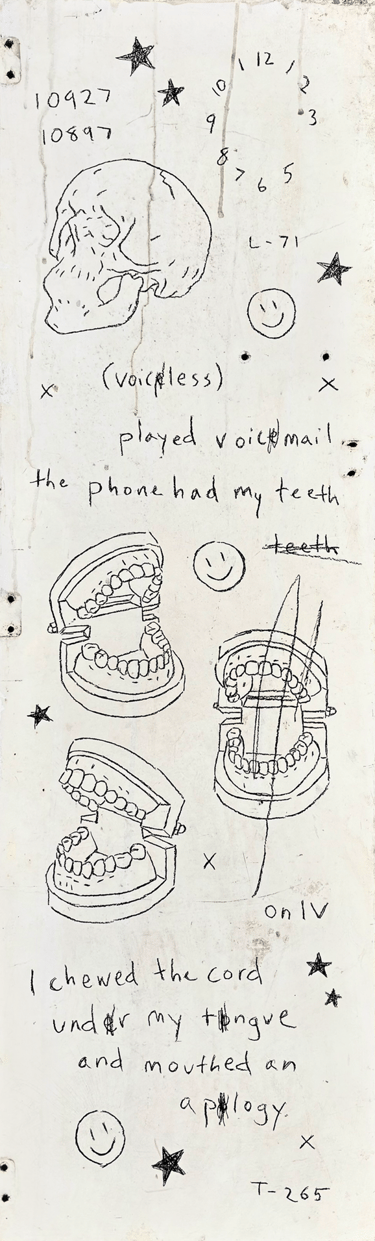 10927
10897
11 12 1
10 2
9 3
8
7 6 5
L-71
(voiceless)
played voicemail
the phone had my teeth
teeth
on IV
I chewed the cord
under my tongue
and mouthed an
apology.
T-265